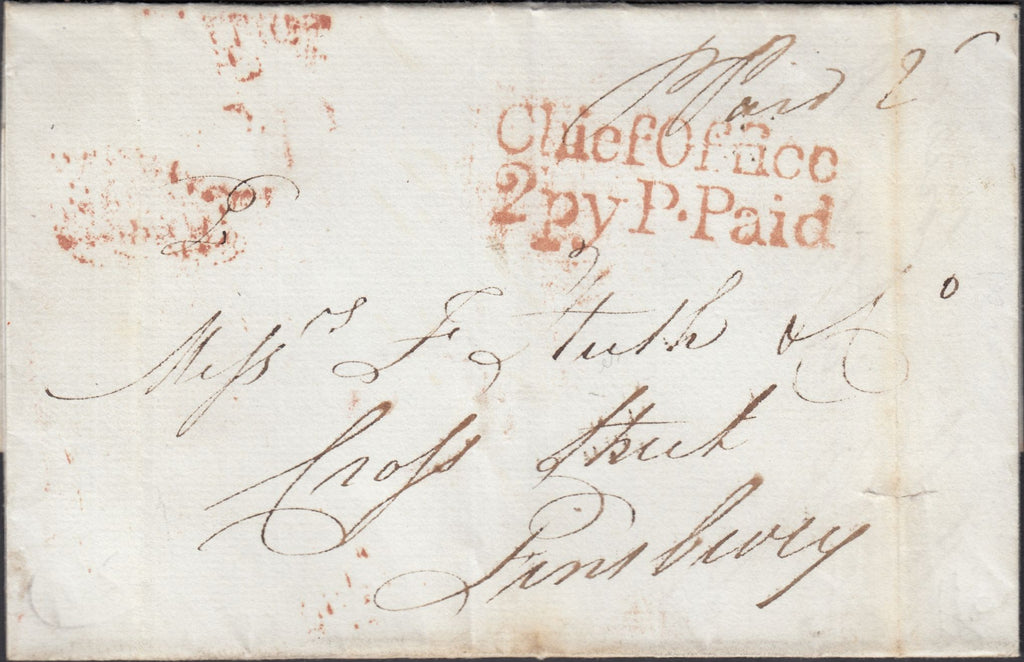 Paid 2
Chief Office
2py P. Paid
2
Messrs F Huth & Co
Cross Street
Finsbury